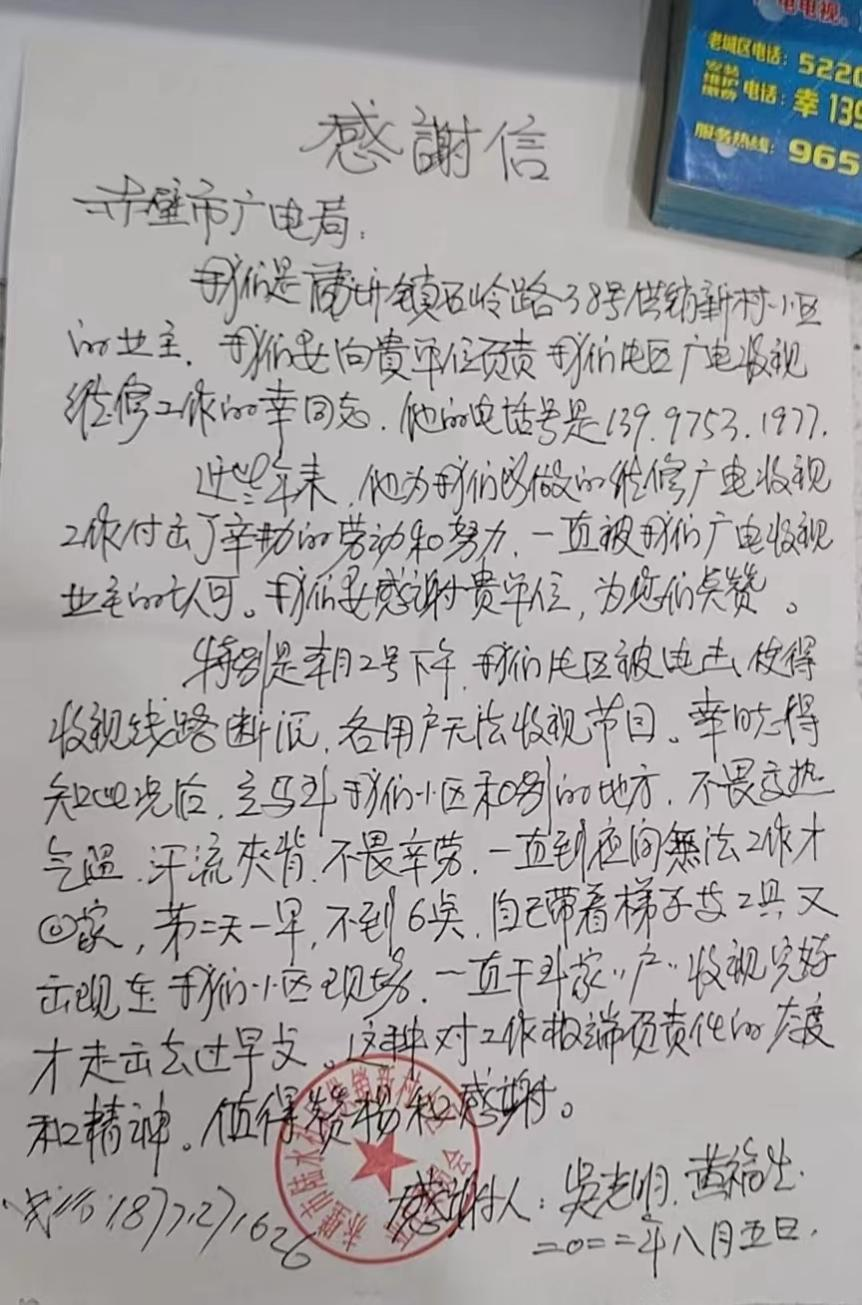 广电电视
老城区电话：5220
安装
维护
缴费
电话：幸 139
服务热线：965
感謝信
赤壁市广电局：
我们是蒲圻镇石岭路38号供销新村小区
的业主．我们要向貴单位负责我们片区广电收视
维修工作的幸同志．他的电话号是139.9753.1977.
近些年来，他为我们所做的维修广电收视
工作付出了辛勤的劳动和努力．一直被我们广电收视
业主的认可。我们要感谢貴单位，为您们点赞。
特别是本月2号下午，我们片区被电击，使得
收视线路断 ，各用户无法收视节目。幸同志得
知 况后，立马到我们小区和别的地方．不畏炎热
气温．汗流夹背．不畏辛劳．一直到夜间無法工作才
回家，第二天一早，不到6点．自己带着梯子及工具又
出现在我们小区现场．一直干到家〃户〃收视完好
才走出去过早点。这种对工作极端负责任的态度
和精神。值得赞扬和感謝。
感谢人：吳光明．黄福生．
二〇二二年八月五日．
18771271626
赤壁市 水 供销新村